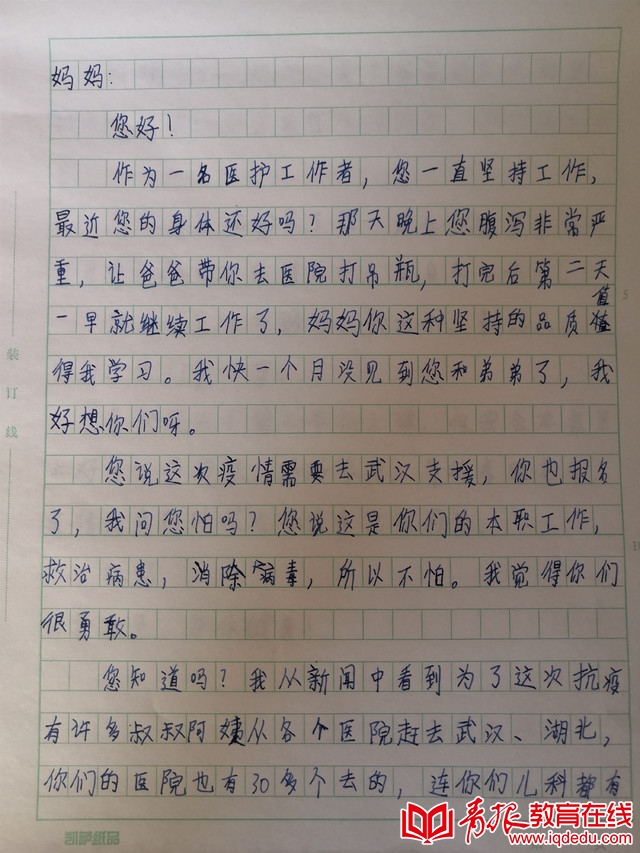 妈妈：
您好！
作为一名医护工作者，您一直坚持工作，
最近您的身体还好吗？那天晚上您腹泻非常严
重，让爸爸带你去医院打吊瓶，打完后第二天
一早就继续工作了，妈妈你这种坚持的品质值
得我学习。我快一个月没见到您和弟弟了，我
好想你们呀。
您说这次疫情需要去武汉支援，你也报名
了，我问您怕吗？您说这是你们的本职工作，
救治病患，消除病毒，所以不怕。我觉得你们
很勇敢。
您知道吗？我从新闻中看到为了这次抗疫
有许多叔叔阿姨从各个医院赶去武汉、湖北，
你们的医院也有30多个去的，连你们儿科都有
装订线
5
凯萨纸品
青报教育在线
www.iqdedu.com